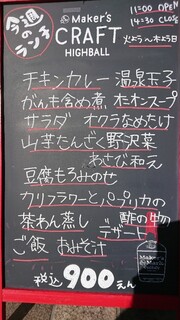 今週のランチ
Maker's
CRAFT
HIGHBALL
11:00 OPEN
14:30 CLOSE
火よう～木よう日
チキンカレー 温泉玉子
がんも含め煮 オニオンスープ
サラダ オクラなめたけ
山芋たんざく野沢菜
わさび和え
豆腐もろみのせ
カリフラワーとパプリカの
茶わん蒸し 酢の物
デザート
ご飯 おみそ汁
税込900えん
Maker's
Mark